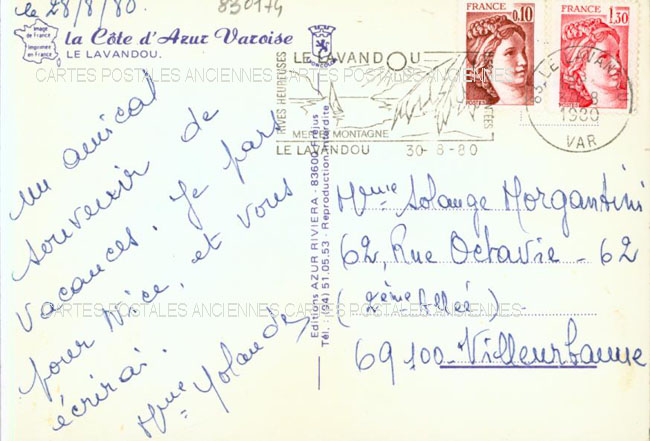 le 28/8/80.
830144
Image
de France
Imprimée
en France
la Côte d'Azur Varoise
LE LAVANDOU.
un amical
souvenir de
vacances. Je pars
pour Nice, et vous
écrirai.
Mme Yolande
Editions AZUR RIVIERA - 83600 Fréjus
Tél. : (94) 51.05.53 - Reproduction interdite
RIVES HEUREUSES
LE LAVANDOU
MER ET MONTAGNE
LE LAVANDOU 30-8-80
FRANCE
0,10
POSTES
FRANCE
1,30
POSTES
83 LE LAVANDOU
1980
VAR
Mme Solange Morgantini
62, Rue Octavie - 62
(2ème Allée)
69100 - Villeurbanne
CARTES POSTALES ANCIENNES CARTES POSTALES ANCIENNES
CARTES POSTALES ANCIENNES CARTES POSTALES ANCIENNES